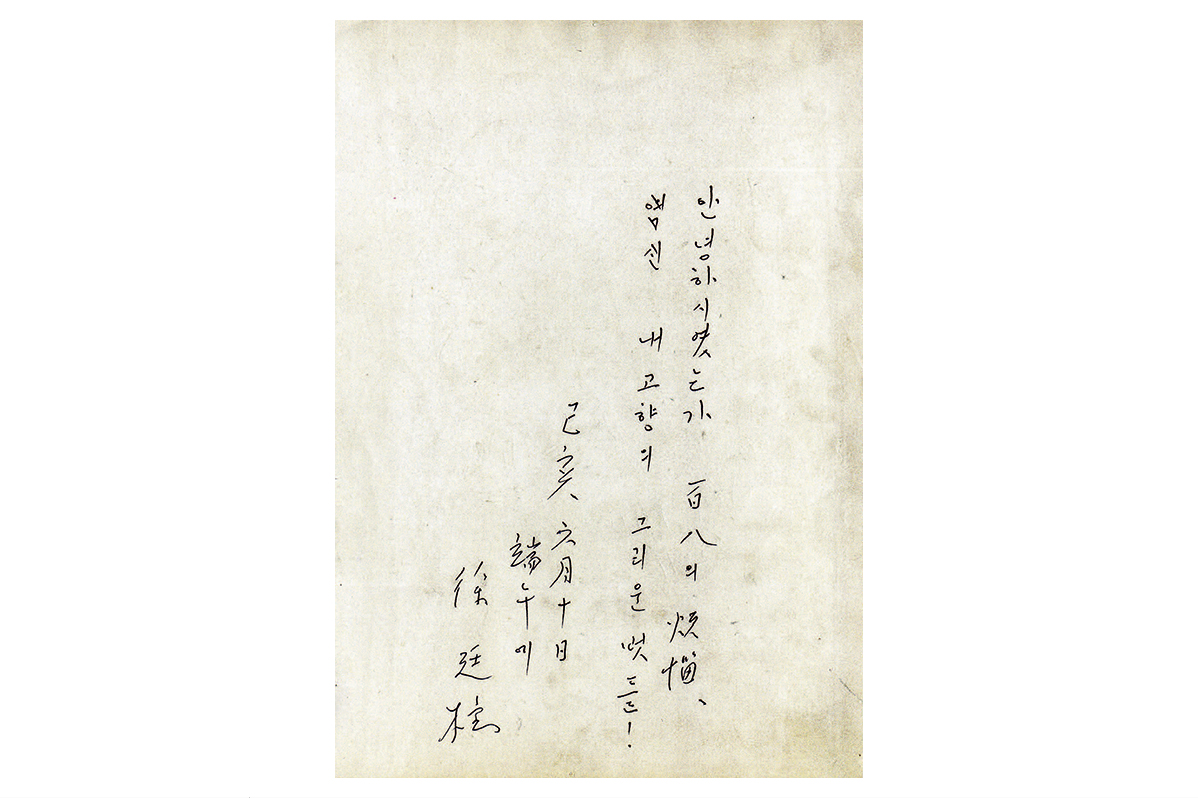 안녕하시엿는가 百八의 煩惱、
내 고향의 그리운 벗들!
己亥 六月十日
端午에
徐廷